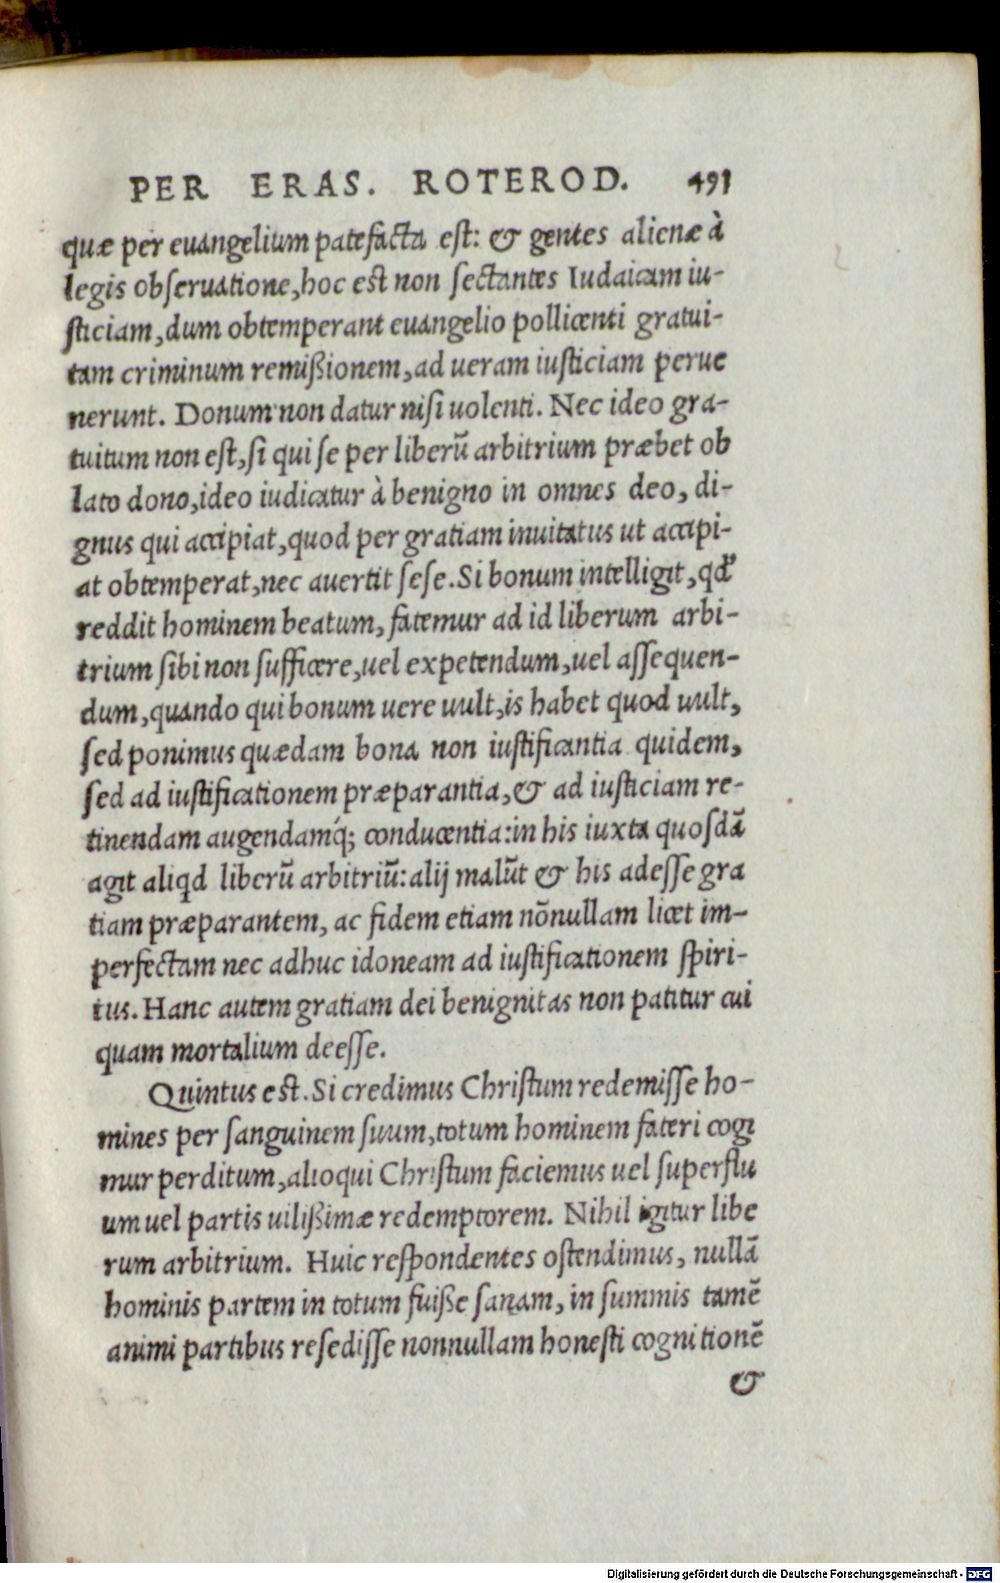 PER ERAS. ROTEROD. 491
quæ per euangelium patefacta est: & gentes alienæ à
legis obſeruatione,hoc est non ſectantes Iudaicam iu-
ſticiam,dum obtemperant euangelio pollicenti gratui-
tam criminum remißionem,ad ueram iuſticiam perue
nerunt. Donum non datur niſi uolenti. Nec ideo gra-
tuitum non eſt,ſi qui ſe per liberū arbitrium præbet ob
lato dono,ideo iudicatur à benigno in omnes deo, di-
gnus qui accipiat,quod per gratiam inuitatus ut accipi-
at obtemperat,nec auertit ſeſe. Si bonum intelligit,qđ
reddit hominem beatum, fatemur ad id liberum arbi-
trium ſibi non ſufficere,uel expetendum,uel aſſequen-
dum,quando qui bonum uere uult,is habet quod uult,
ſed ponimus quædam bona non iuſtificantia quidem,
ſed ad iuſtificationem præparantia,& ad iuſticiam re-
tinendam augendamq́; conducentia:in his iuxta quoſdā
agit aliqd liberū arbitriū: alij malūt & his adeſſe gra
tiam præparantem, ac fidem etiam nōnullam licet im-
perfectam nec adhuc idoneam ad iuſtificationem ſpiri-
tus. Hanc autem gratiam dei benignitas non patitur cui
quam mortalium deeſſe.
Quintus est. Si credimus Chriſtum redemiſſe ho-
mines per ſanguinem ſuum,totum hominem fateri cogi
mur perditum,alioqui Chriſtum faciemus uel ſuperflu
um uel partis uilißimæ redemptorem. Nihil igitur libe
rum arbitrium. Huic reſpondentes oſtendimus, nullā
hominis partem in totum fuiße ſanam, in ſummis tamē
animi partibus reſediſſe nonnullam honeſti cognitionē
&
Digitalisierung gefördert durch die Deutsche Forschungsgemeinschaft - DFG